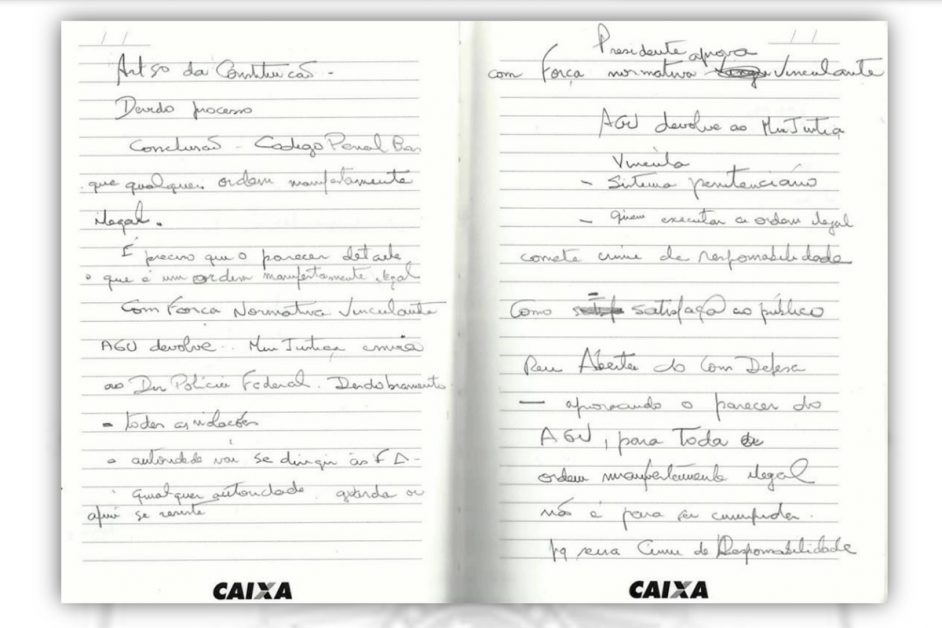 Art 50 da Constituição -
Devido processo
Conclusão - Codego Penal Bras
que qualquer ordem manifestamente
ilegal.
É preciso que o parecer detalhe
o que é um ordem manifestamente ilegal
Com Força Normativa Vinculante
AGU devolve .. Min Justiça envia
ao Dir Polícia Federal. Desdobramento
- todas as violações
o autoridade vai se dirigir às
qualquer autoridade
se
CAIXA
Presidente aprova
com Força normativa Vinculante
AGU devolve ao Min Justiça
Vincula
- Sistema penitenciário
- quem executar a ordem ilegal
comete crime de responsabilidade
Como satisfaça ao público
Reu Aberta do Com Defesa
- aprovando o parecer do
AGU, para Toda
ordem manifestamente ilegal
não é para ser cumprida.
pq seria Crime de Responsabilidade
CAIXA